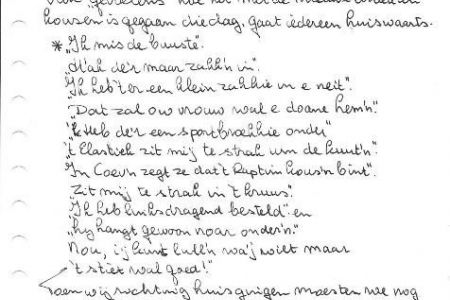 housen is gegaan die dag, gaat iedereen huiswaarts.
* "Ik mis de buuste".
"Ak de'r maar zakk'n in"
"Ik heb't er een klein zakkie in e neit".
"Dat zal ow vrouw wal e doane hem'n."
"k Heb de'r een sportbroekkie onder"
"t Elastiek zit mij te strak um de kuut'n".
"In Coev'n zegt ze dat't Ruptuin hous'n bint".
"Zit mij te strak in 't kruus".
"Ik heb linksdragend besteld" en
"hy hangt gewoon noar onder'n".
"Nou, ij kunt lull'n wa'j wilt maar
't stiet wal goed!"
wij huis gingen moesten we nog